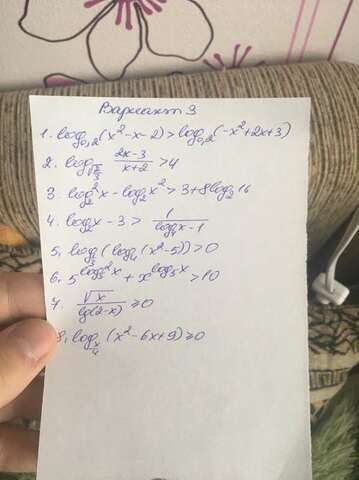 Вариант 3
1. log₀,₂(x²-x-2)>log₀,₂(-x²+2x+3)
2. log_{√5/3} (2x-3)/(x+2) >4
3. log₂²x-log₂x²>3+8log₂16
4. log₄x-3> 1/(log₄x-1)
5. log₃(log₄(x²-5))>0
6. 5^{log₅²x}+x^{log₅x}>10
7. √x/lg(2-x) ≥0
8. log_{x/4}(x²-6x+9)≥0